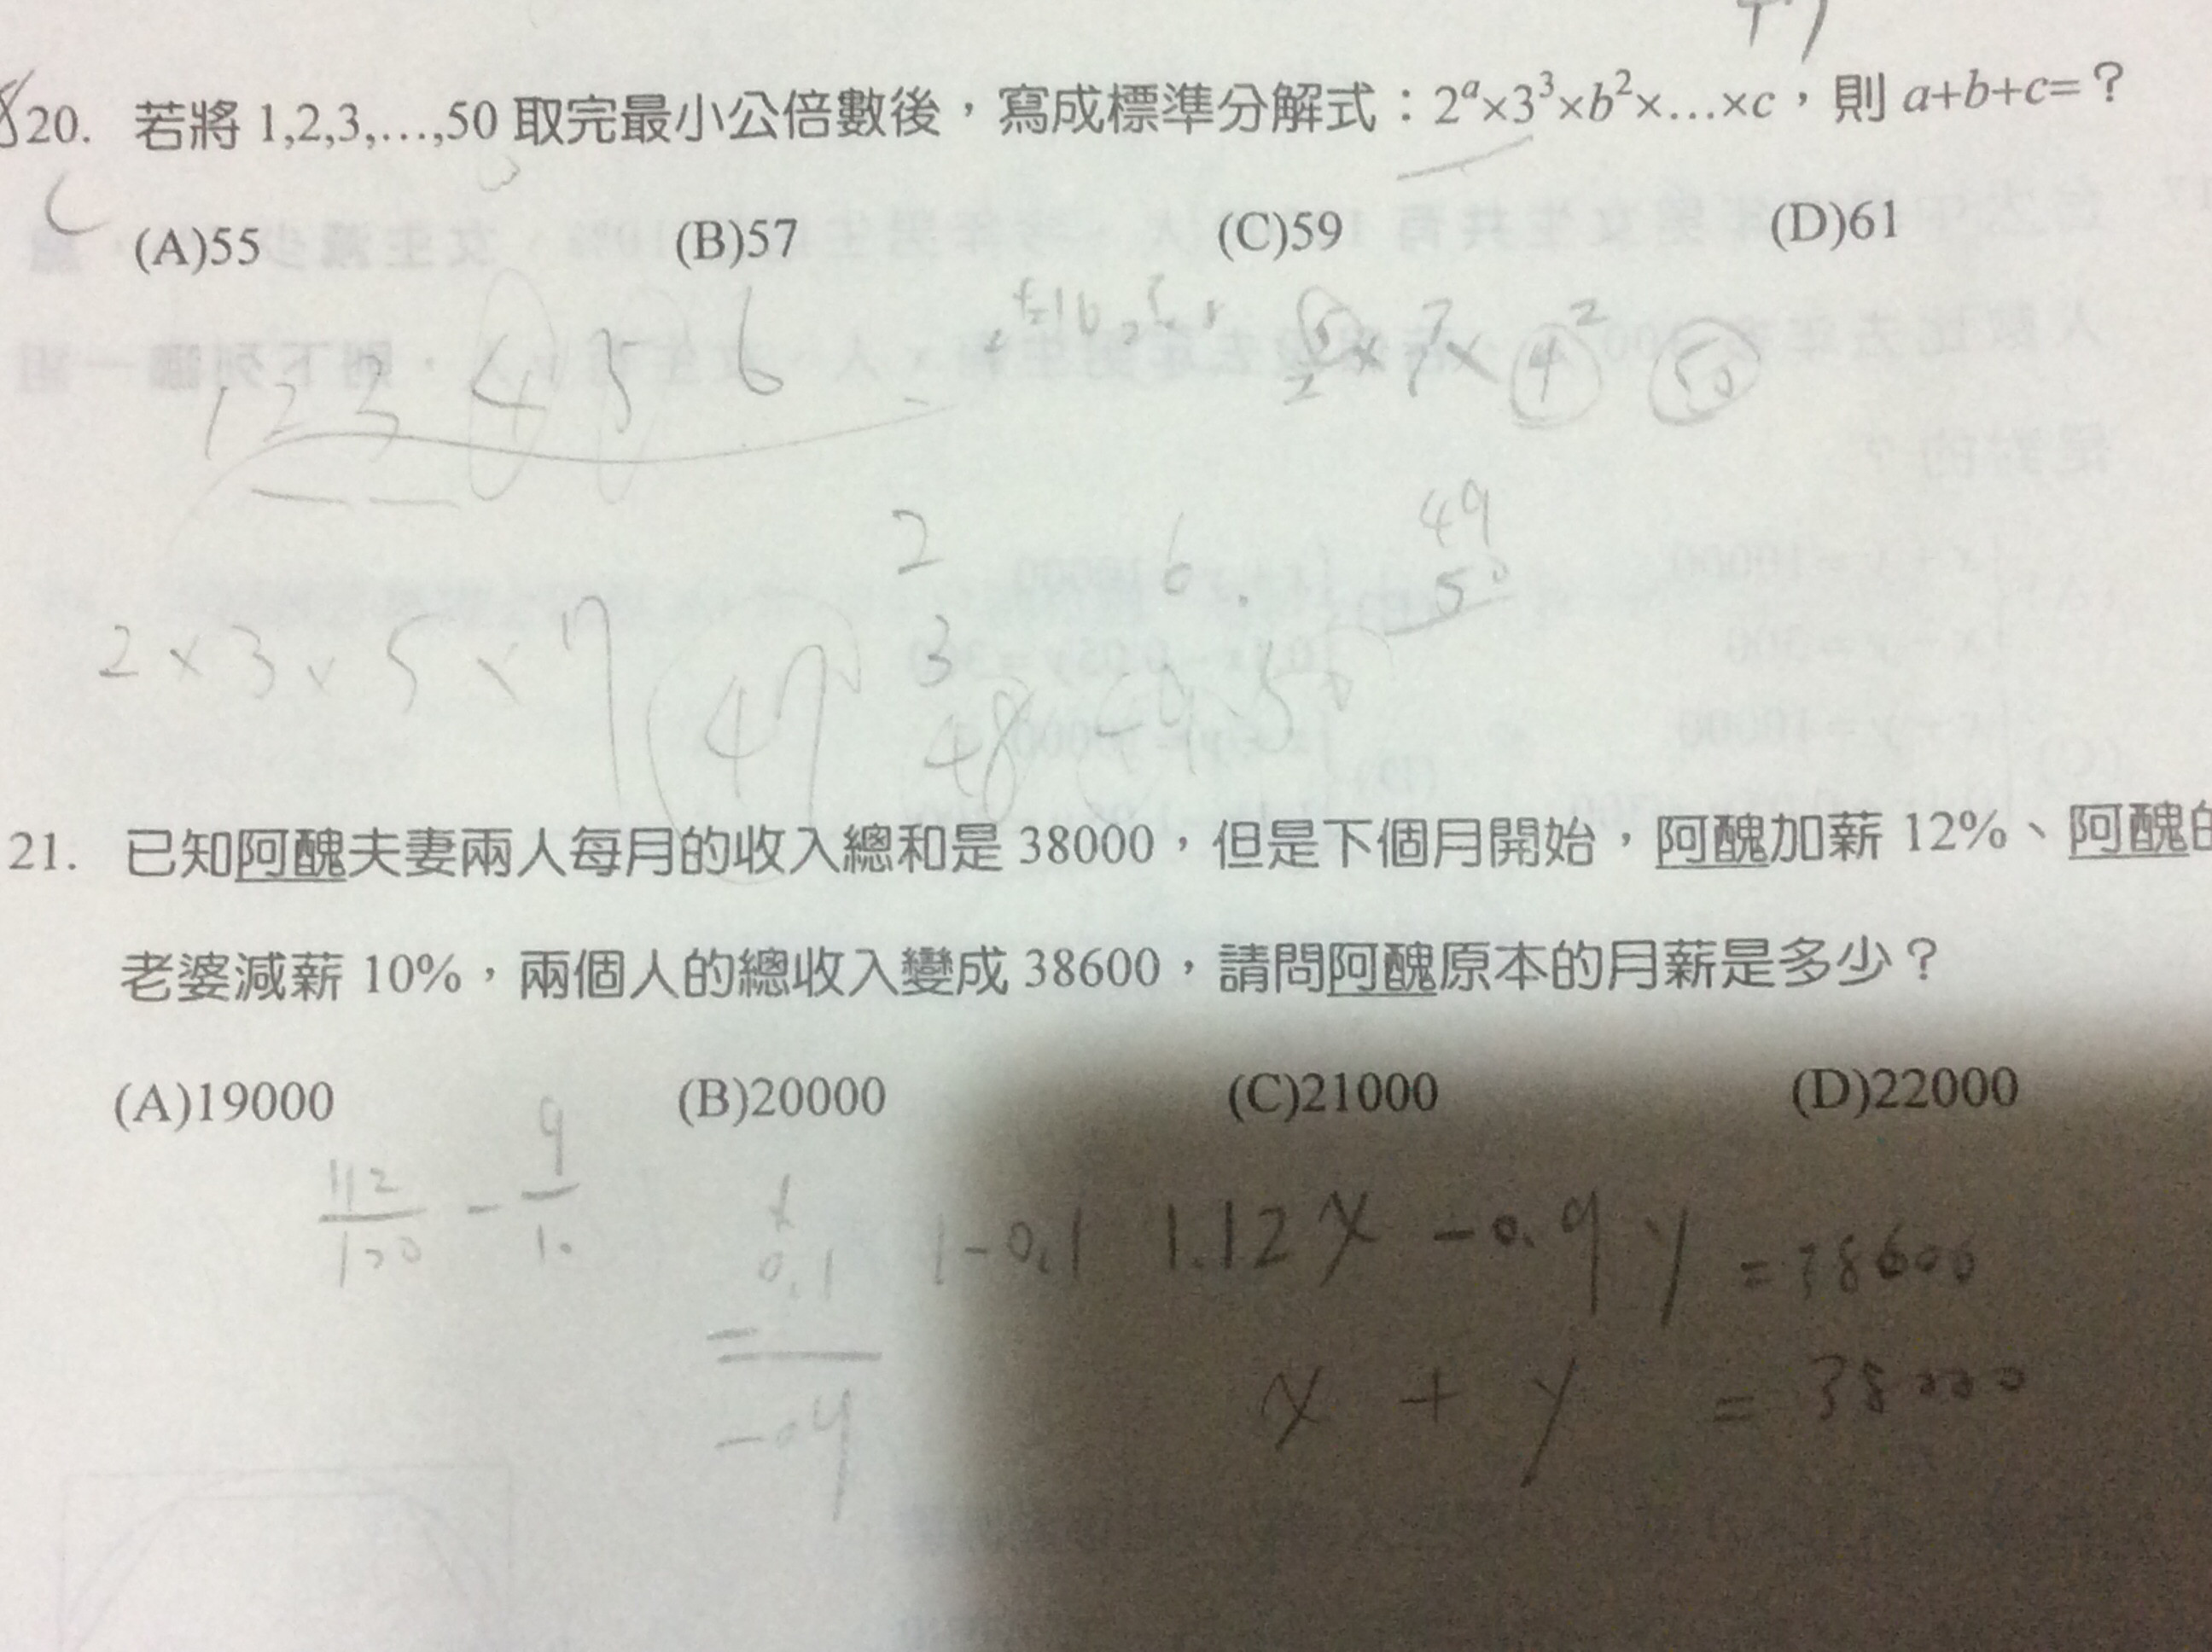 20. 若將 1,2,3,…,50 取完最小公倍數後，寫成標準分解式：2ᵃ×3³×b²×…×c，則 a+b+c=？
C
(A)55 (B)57 (C)59 (D)61
1 2 3 4 5 6
7 × 4² 50
2 6. 49
3 50
2 × 3 × 5 × 7 47 48 49 50
21. 已知阿醜夫妻兩人每月的收入總和是 38000，但是下個月開始，阿醜加薪 12%、阿醜的
老婆減薪 10%，兩個人的總收入變成 38600，請問阿醜原本的月薪是多少？
(A)19000 (B)20000 (C)21000 (D)22000
112/100 - 9/10
0.1 1-0.1 1.12x -0.9y = 38600
x + y = 38000